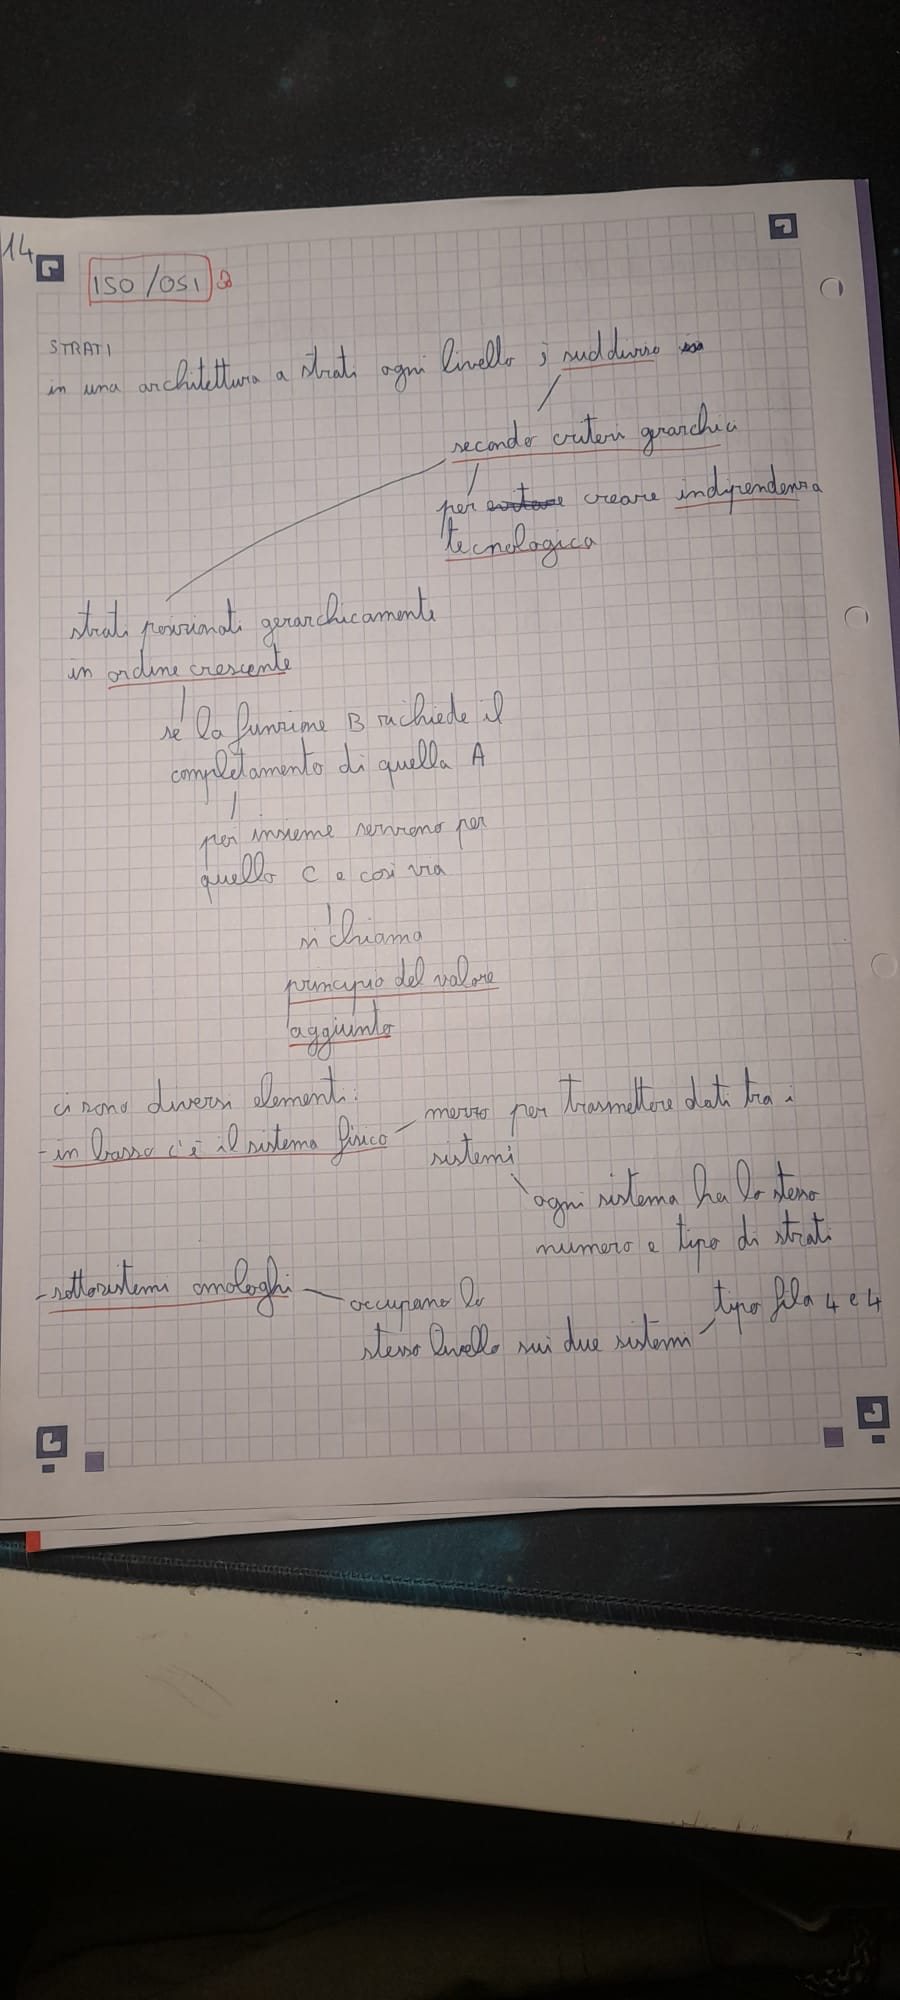 14
ISO/OSI
STRATI
in una architettura a strati ogni livello è suddiviso
secondo criteri gerarchici
per evitare creare indipendenza
tecnologica
strati posizionati gerarchicamente
in ordine crescente
se la funzione B richiede il
completamento di quella A
poi insieme servono per
quello C e così via
si chiama
principio del valore
aggiunto
ci sono diversi elementi:
- in basso c'è il sistema fisico - mezzo per trasmettere dati tra i
sistemi
ogni sistema ha lo stesso
numero e tipo di strati
- sottosistemi omologhi - occupano lo
stesso livello sui due sistemi - tipo fila 4 e 4